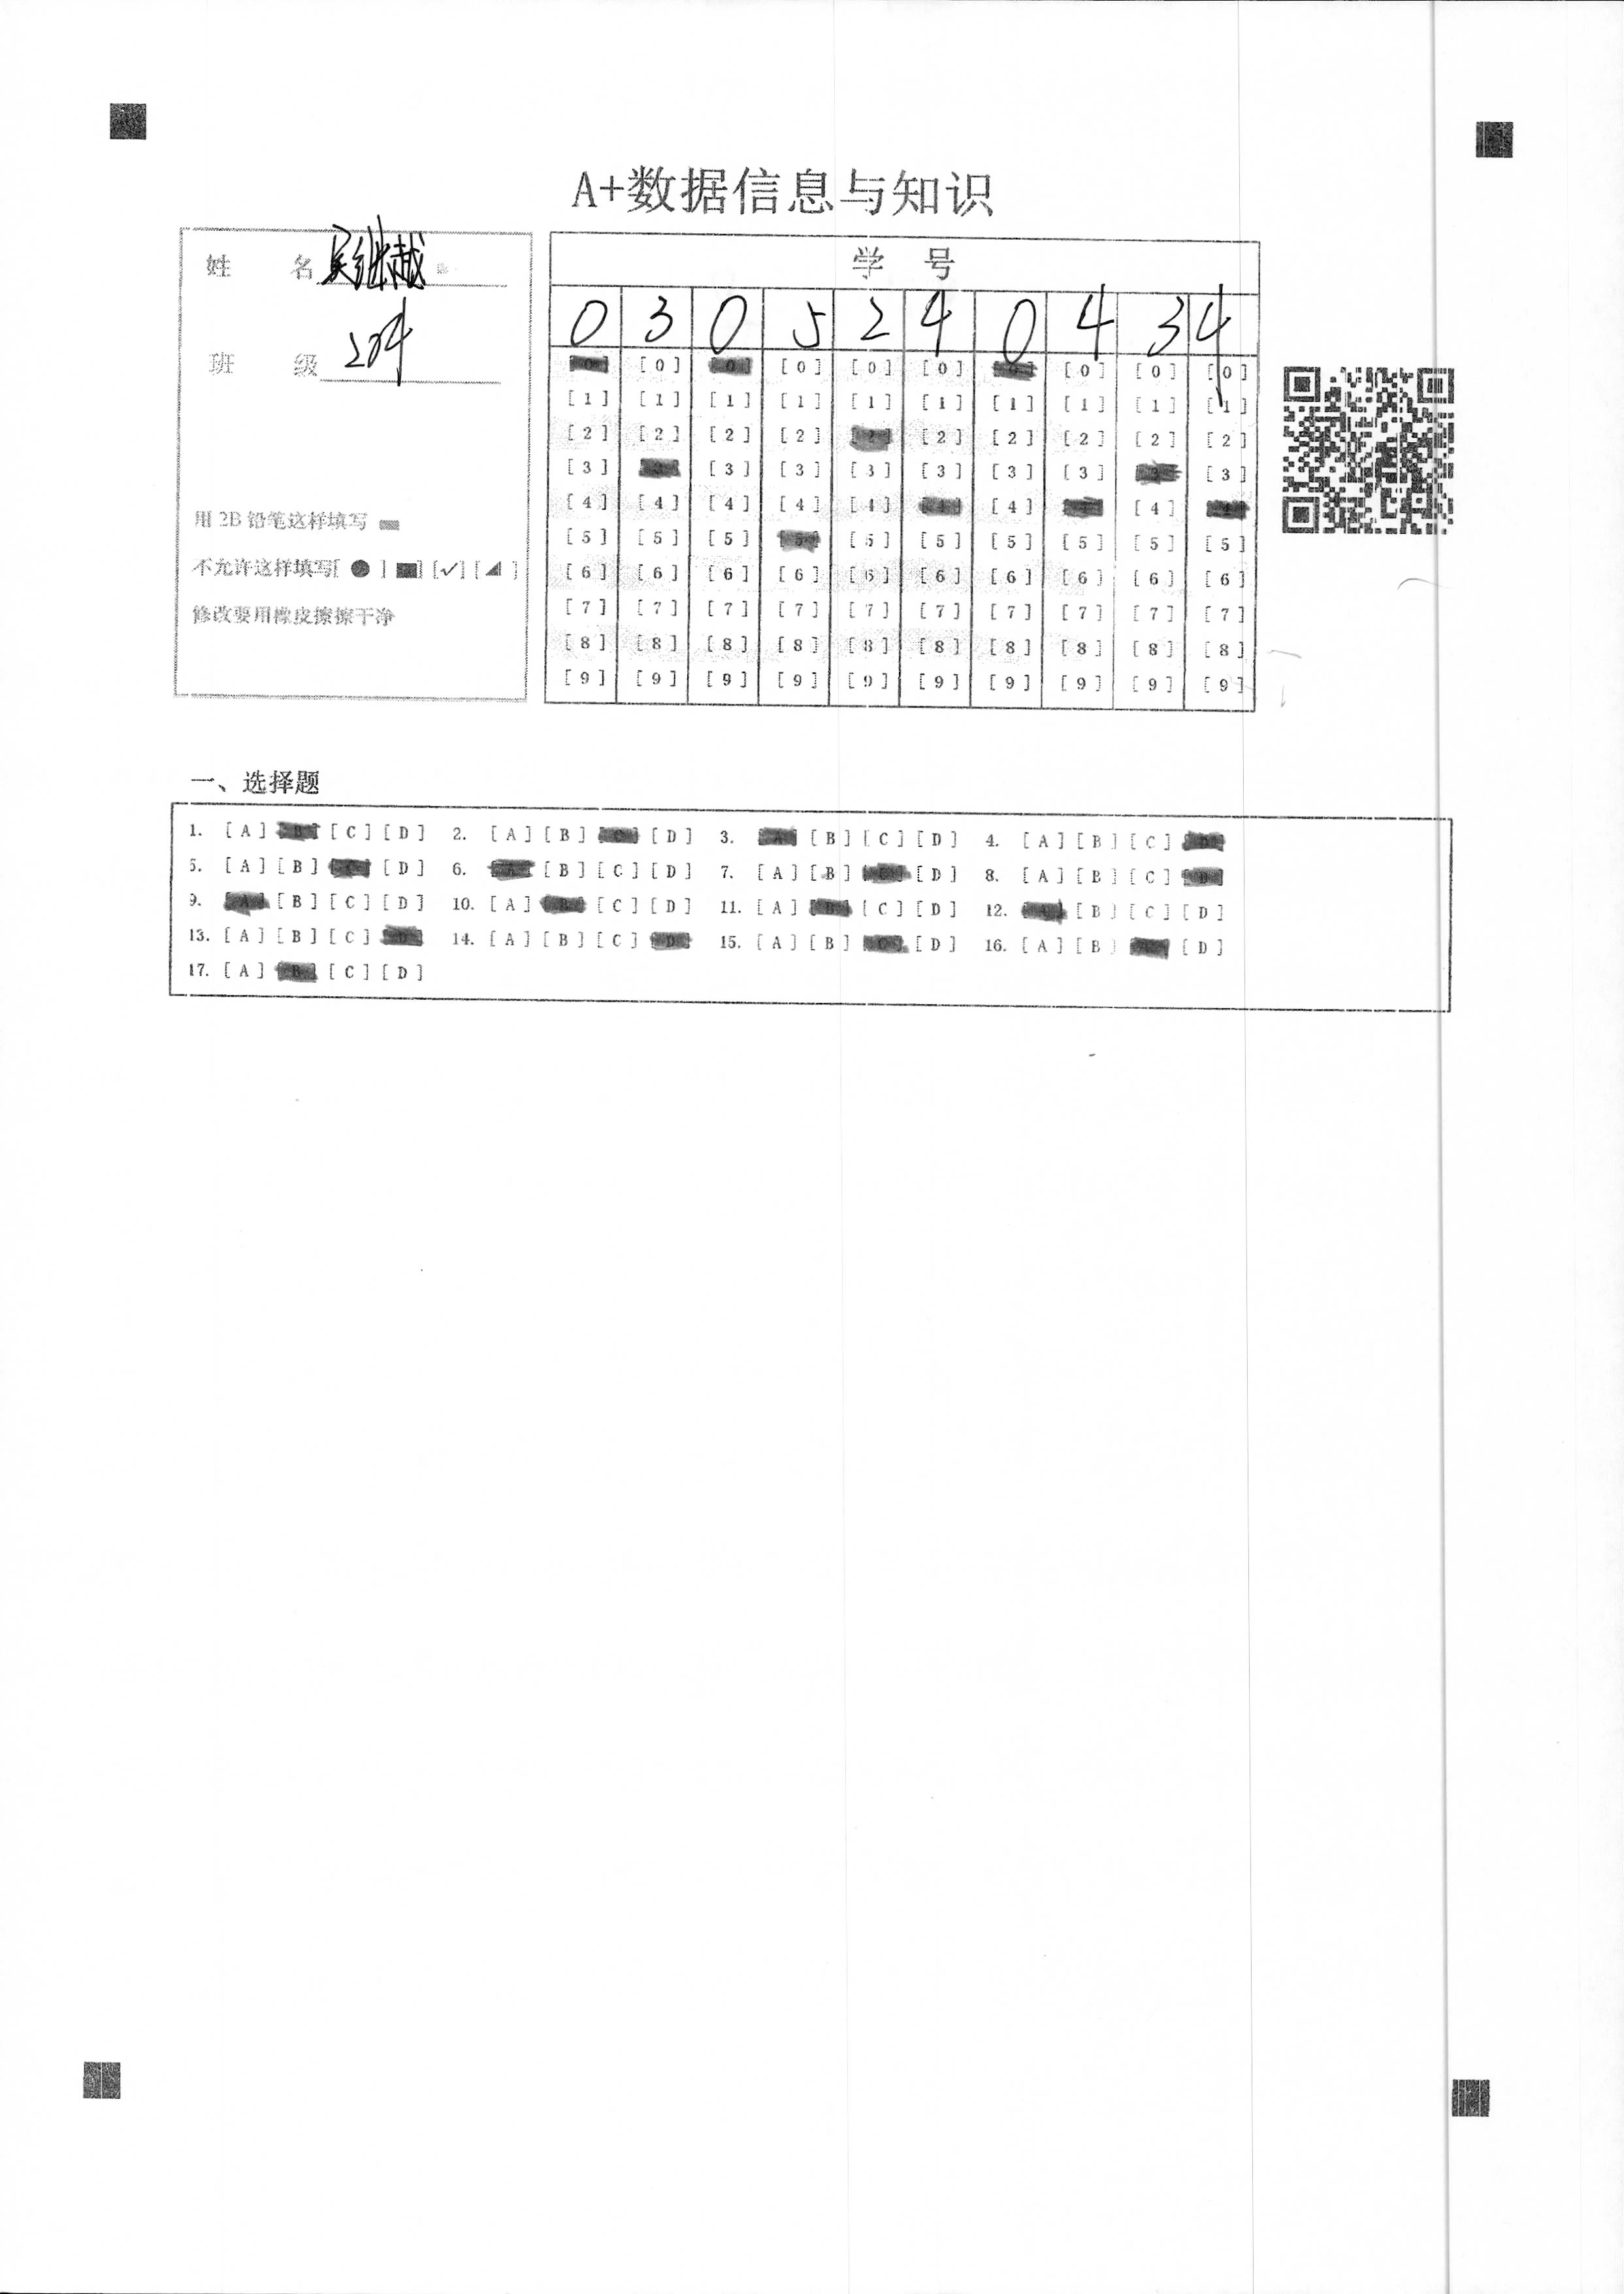 A+数据信息与知识
姓 名 吴继越
班 级 204
用 2B 铅笔这样填写
不允许这样填写[ ● ] [■] [✓] [◢]
修改要用橡皮擦擦干净
学 号
0 3 0 5 2 4 0 4 3 4
[0] [0] [0] [0] [0] [0] [0] [0] [0] [0]
[1] [1] [1] [1] [1] [1] [1] [1] [1] [1]
[2] [2] [2] [2] [2] [2] [2] [2] [2] [2]
[3] [3] [3] [3] [3] [3] [3] [3] [3] [3]
[4] [4] [4] [4] [4] [4] [4] [4] [4] [4]
[5] [5] [5] [5] [5] [5] [5] [5] [5] [5]
[6] [6] [6] [6] [6] [6] [6] [6] [6] [6]
[7] [7] [7] [7] [7] [7] [7] [7] [7] [7]
[8] [8] [8] [8] [8] [8] [8] [8] [8] [8]
[9] [9] [9] [9] [9] [9] [9] [9] [9] [9]
一、选择题
1. [A] [B] [C] [D] 2. [A] [B] [C] [D] 3. [A] [B] [C] [D] 4. [A] [B] [C] [D]
5. [A] [B] [C] [D] 6. [A] [B] [C] [D] 7. [A] [B] [C] [D] 8. [A] [B] [C] [D]
9. [A] [B] [C] [D] 10. [A] [B] [C] [D] 11. [A] [B] [C] [D] 12. [A] [B] [C] [D]
13. [A] [B] [C] [D] 14. [A] [B] [C] [D] 15. [A] [B] [C] [D] 16. [A] [B] [C] [D]
17. [A] [B] [C] [D]